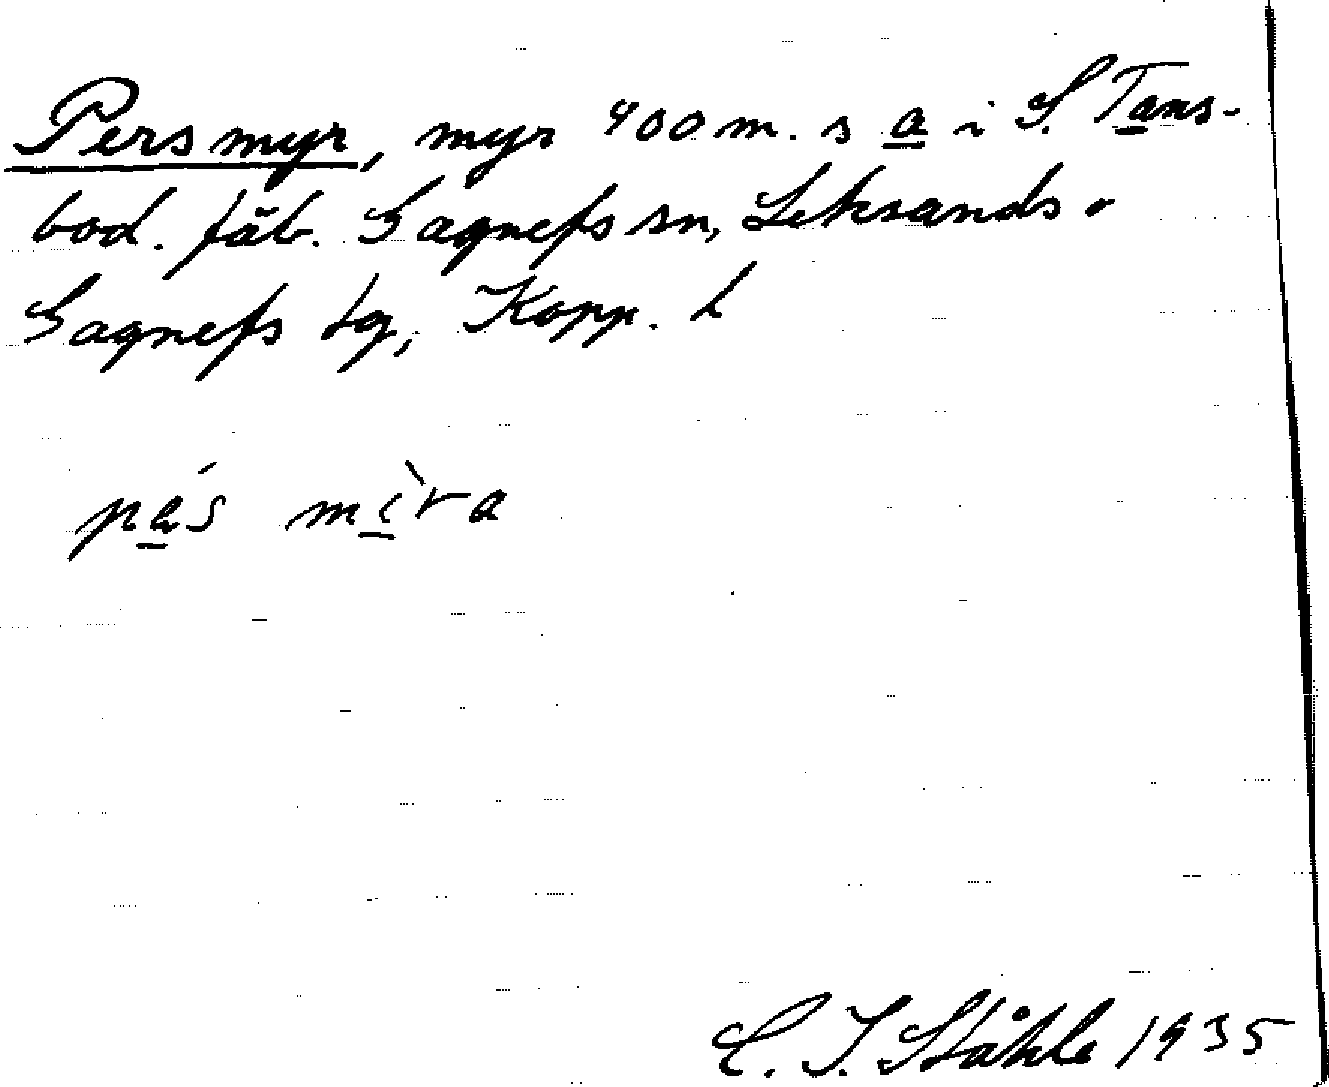 Persmyr, myr 400 m. s a i S. Tans-
bod. fäb. Gagnefs sn, Leksands o
Gagnefs tg, Kopp. l
pa̲s mì̲ra
C. I. Ståhle 1935